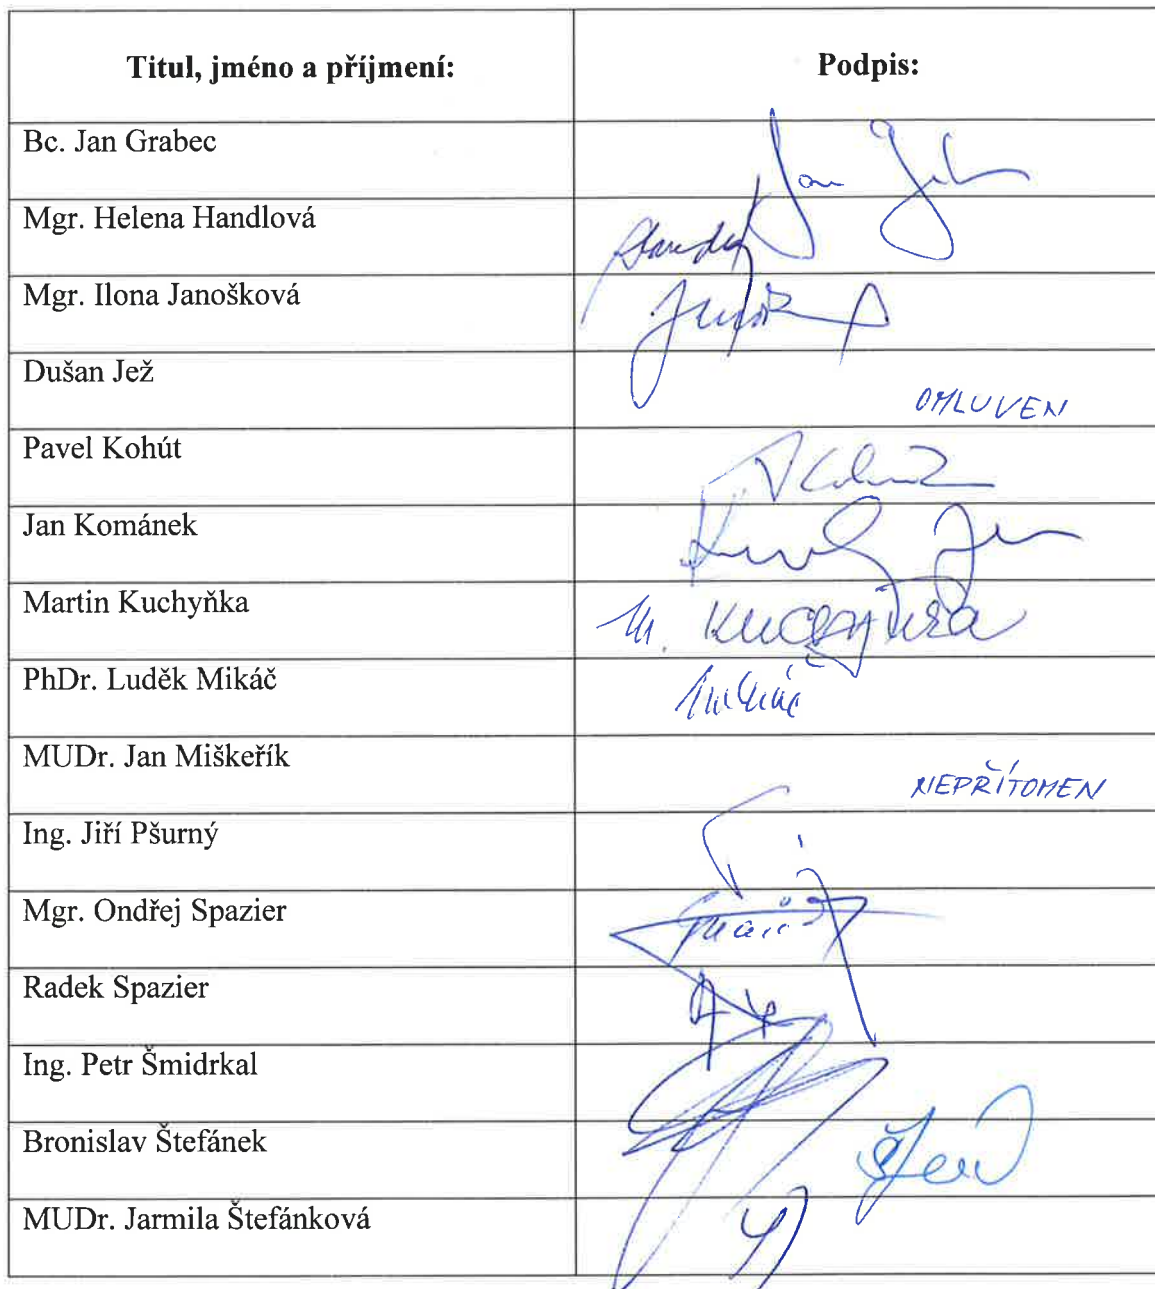 Titul, jméno a příjmení: Podpis:
Bc. Jan Grabec
Mgr. Helena Handlová
Mgr. Ilona Janošková
Dušan Jež OMLUVEN
Pavel Kohút
Jan Kománek
Martin Kuchyňka M. Kuchyňka
PhDr. Luděk Mikáč
MUDr. Jan Miškeřík NEPŘÍTOMEN
Ing. Jiří Pšurný
Mgr. Ondřej Spazier
Radek Spazier
Ing. Petr Šmidrkal
Bronislav Štefánek
MUDr. Jarmila Štefánková